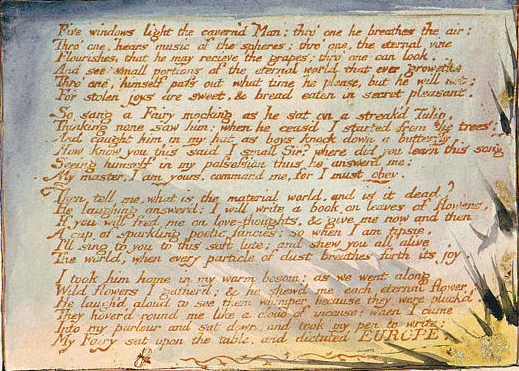 Five windows light the cavern'd Man; thro' one he breathes the air;
Thro' one, hears music of the spheres; thro' one, the eternal vine
Flourishes, that he may recieve the grapes; thro' one can look.
And see small portions of the eternal world that ever groweth;
Thro' one, himself pass out what time he please, but he will not;
For stolen joys are sweet, & bread eaten in secret pleasant.
So sang a Fairy mocking as he sat on a streak'd Tulip,
Thinking none saw him: when he ceas'd I started from the trees!
And caught him in my hat as boys knock down a butterfly.
How know you this said I small Sir? where did you learn this song?
Seeing himself in my possession thus he answerd me:
My master, I am yours. command me, for I must obey.
Then tell me, what is the material world, and is it dead?
He laughing answer'd: I will write a book on leaves of flowers,
If you will feed me on love-thoughts, & give me now and then
A cup of sparkling poetic fancies; so when I am tipsie,
I'll sing to you to this soft lute; and shew you all alive
The world, when every particle of dust breathes forth its joy.
I took him home in my warm bosom: as we went along
Wild flowers I gatherd; & he shew'd me each eternal flower:
He laugh'd aloud to see them whimper because they were pluck'd.
They hover'd round me like a cloud of incense: when I came
Into my parlour and sat down, and took my pen to write:
My Fairy sat upon the table, and dictated EUROPE.